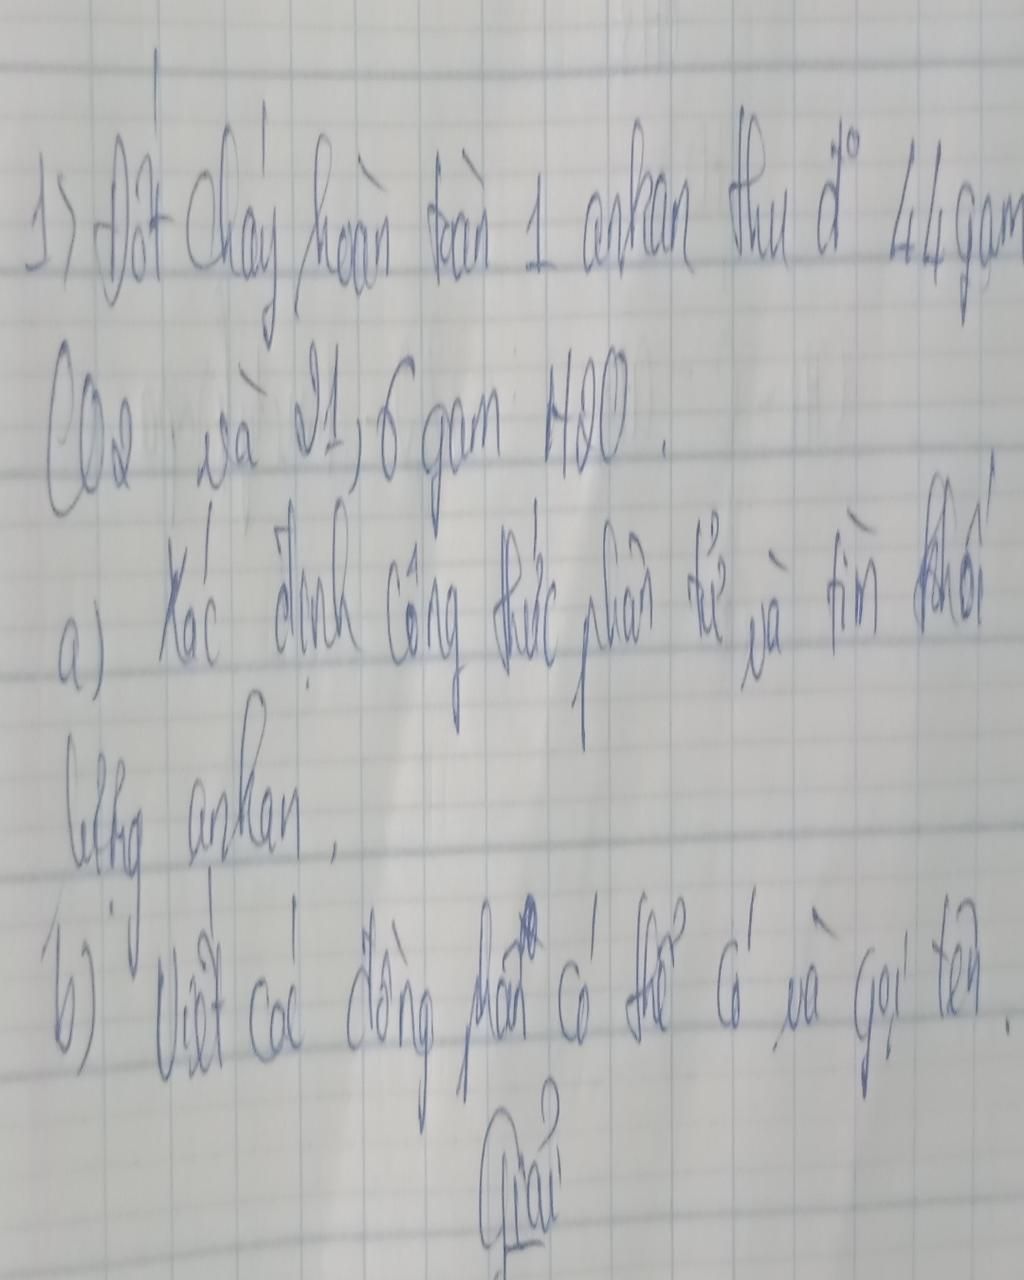 1) Đốt cháy hoàn toàn 1 ankan thu đ° 44 gam
CO2 và 21,6 gam H2O.
a) Xác định công thức phân tử và tìm khối
lượng ankan.
b) Viết các đồng phân có thể có và gọi tên.
Giải